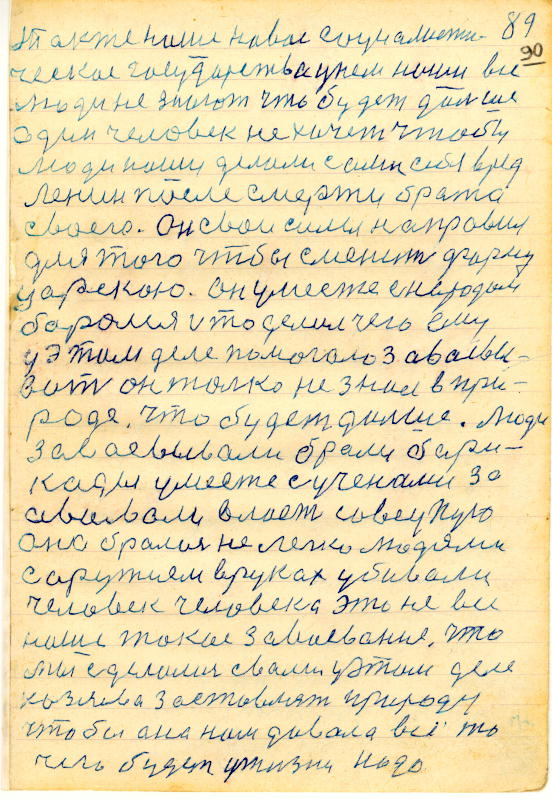 89
90
Также наше новое социалисти-
ческое государства унем наши все
люди не знают что будет дальше
один человек не хочет чтобы
люди наши делали сами себя вред
Ленин после смерти брата
своего. Он свои силы направил
для того чтобы сменит форму
царскою. он умесже снародом
боролся и то делал чего ему
уэтом деле помогало завоевы-
ват он толко не знал в при-
роде, что будет дальше. Люди
завоевывали брали бари-
кады умесже сучеными за
авывали власт советскую
она бралася не легко людями
соружием вруках убивали
человек человека это не все
наше такое завоевание, что
мы сделалися свами уэтом деле
хозяева заставлят природу
чтобы она нам давала всё то
чего будет ужизни надо